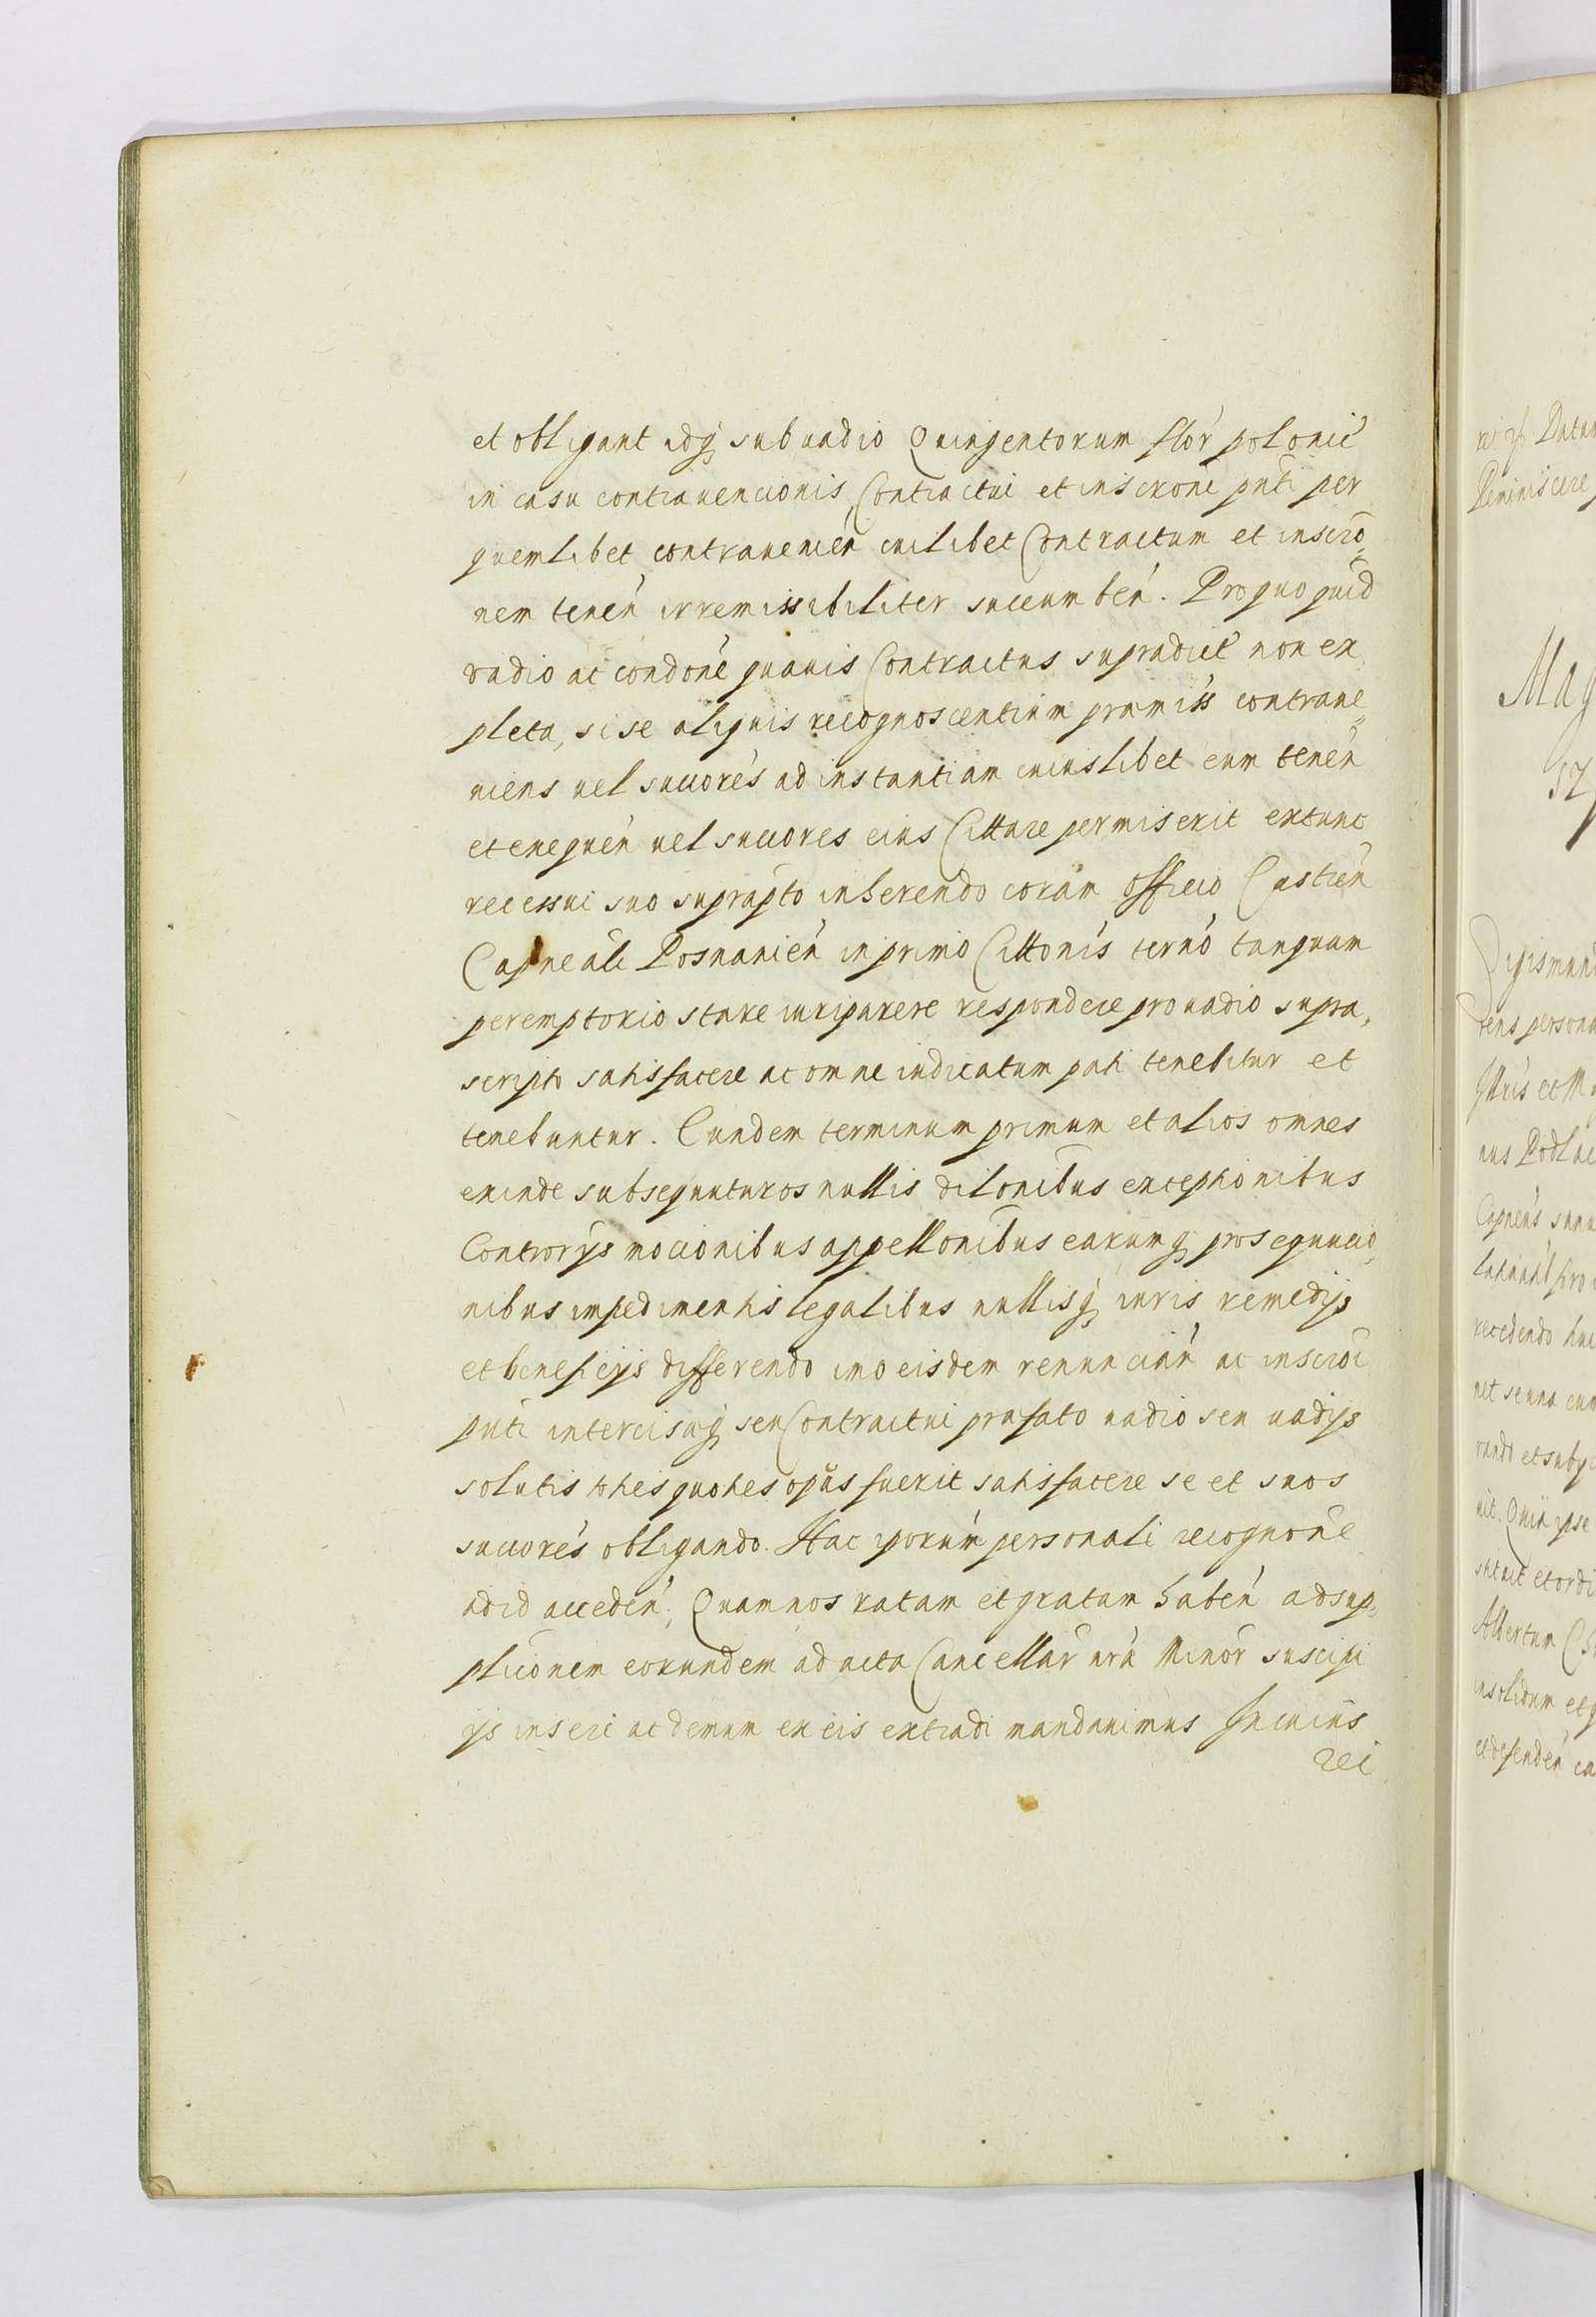 et obligant idq́ sub uadio Quingentorum flór polonić
in casu contrauencionis, Contractui et inscroñi pnti per
quemlibet contraueniéń cuilibet Contractum et inscrō=
nem tenéń irremissibiliter succumbéń. Pro quo quid
vadio ac condońe quauis Contractus supradict non ex
pleta, si se aliquis recognoscentium præmiss contraue=
niens uel succorés ad instantiam cuiuslibet eum tenéń
et exequéń uel succores eius Cittare permiserit extunc
recessui suo suprapto inherendo coram Officio Castreń
Capneali Posnaniéń in primo Cittonis termó tanquam
peremptorio stare iuri parere respondere pro uadio supra,
scripto satisfacere ac omne iudicatum pati tenebitur et
tenebuntur. Eundem terminum primum et alios omnes
exinde subsequuturos nullis dilonibus exceptionibus
Controrÿs mocionibus appellonibus earumq́ prosequucio,
nibus impedimentis legalibus nullisq́ iuris remedÿs
et beneficÿs differendo imo eisdem renunciáń ac inscroi
pnti intercisæq́ seu Contractui præfato uadio seu uadÿs
solutis toties quoties opus fuerit satisfacere se et suos
succorés obligando. Hac iporum personali recognońe
ad id accedéń, Quam nos ratam et gratam habéń ad sup,
plicionem eorundem ad acta Cancellar nrá Minor suscipi
ÿs inseri ac demum ex eis extradi mandauimus In cuius
rei
rei
Reminiscere
Mag
Sigismund
rens persona
Illris et M
nus Podla
recedendo hu
net se una cum
vando et suby
uit. Quia ipse
stituit et ordi
Albertum
in solidum et
et defendéń ca